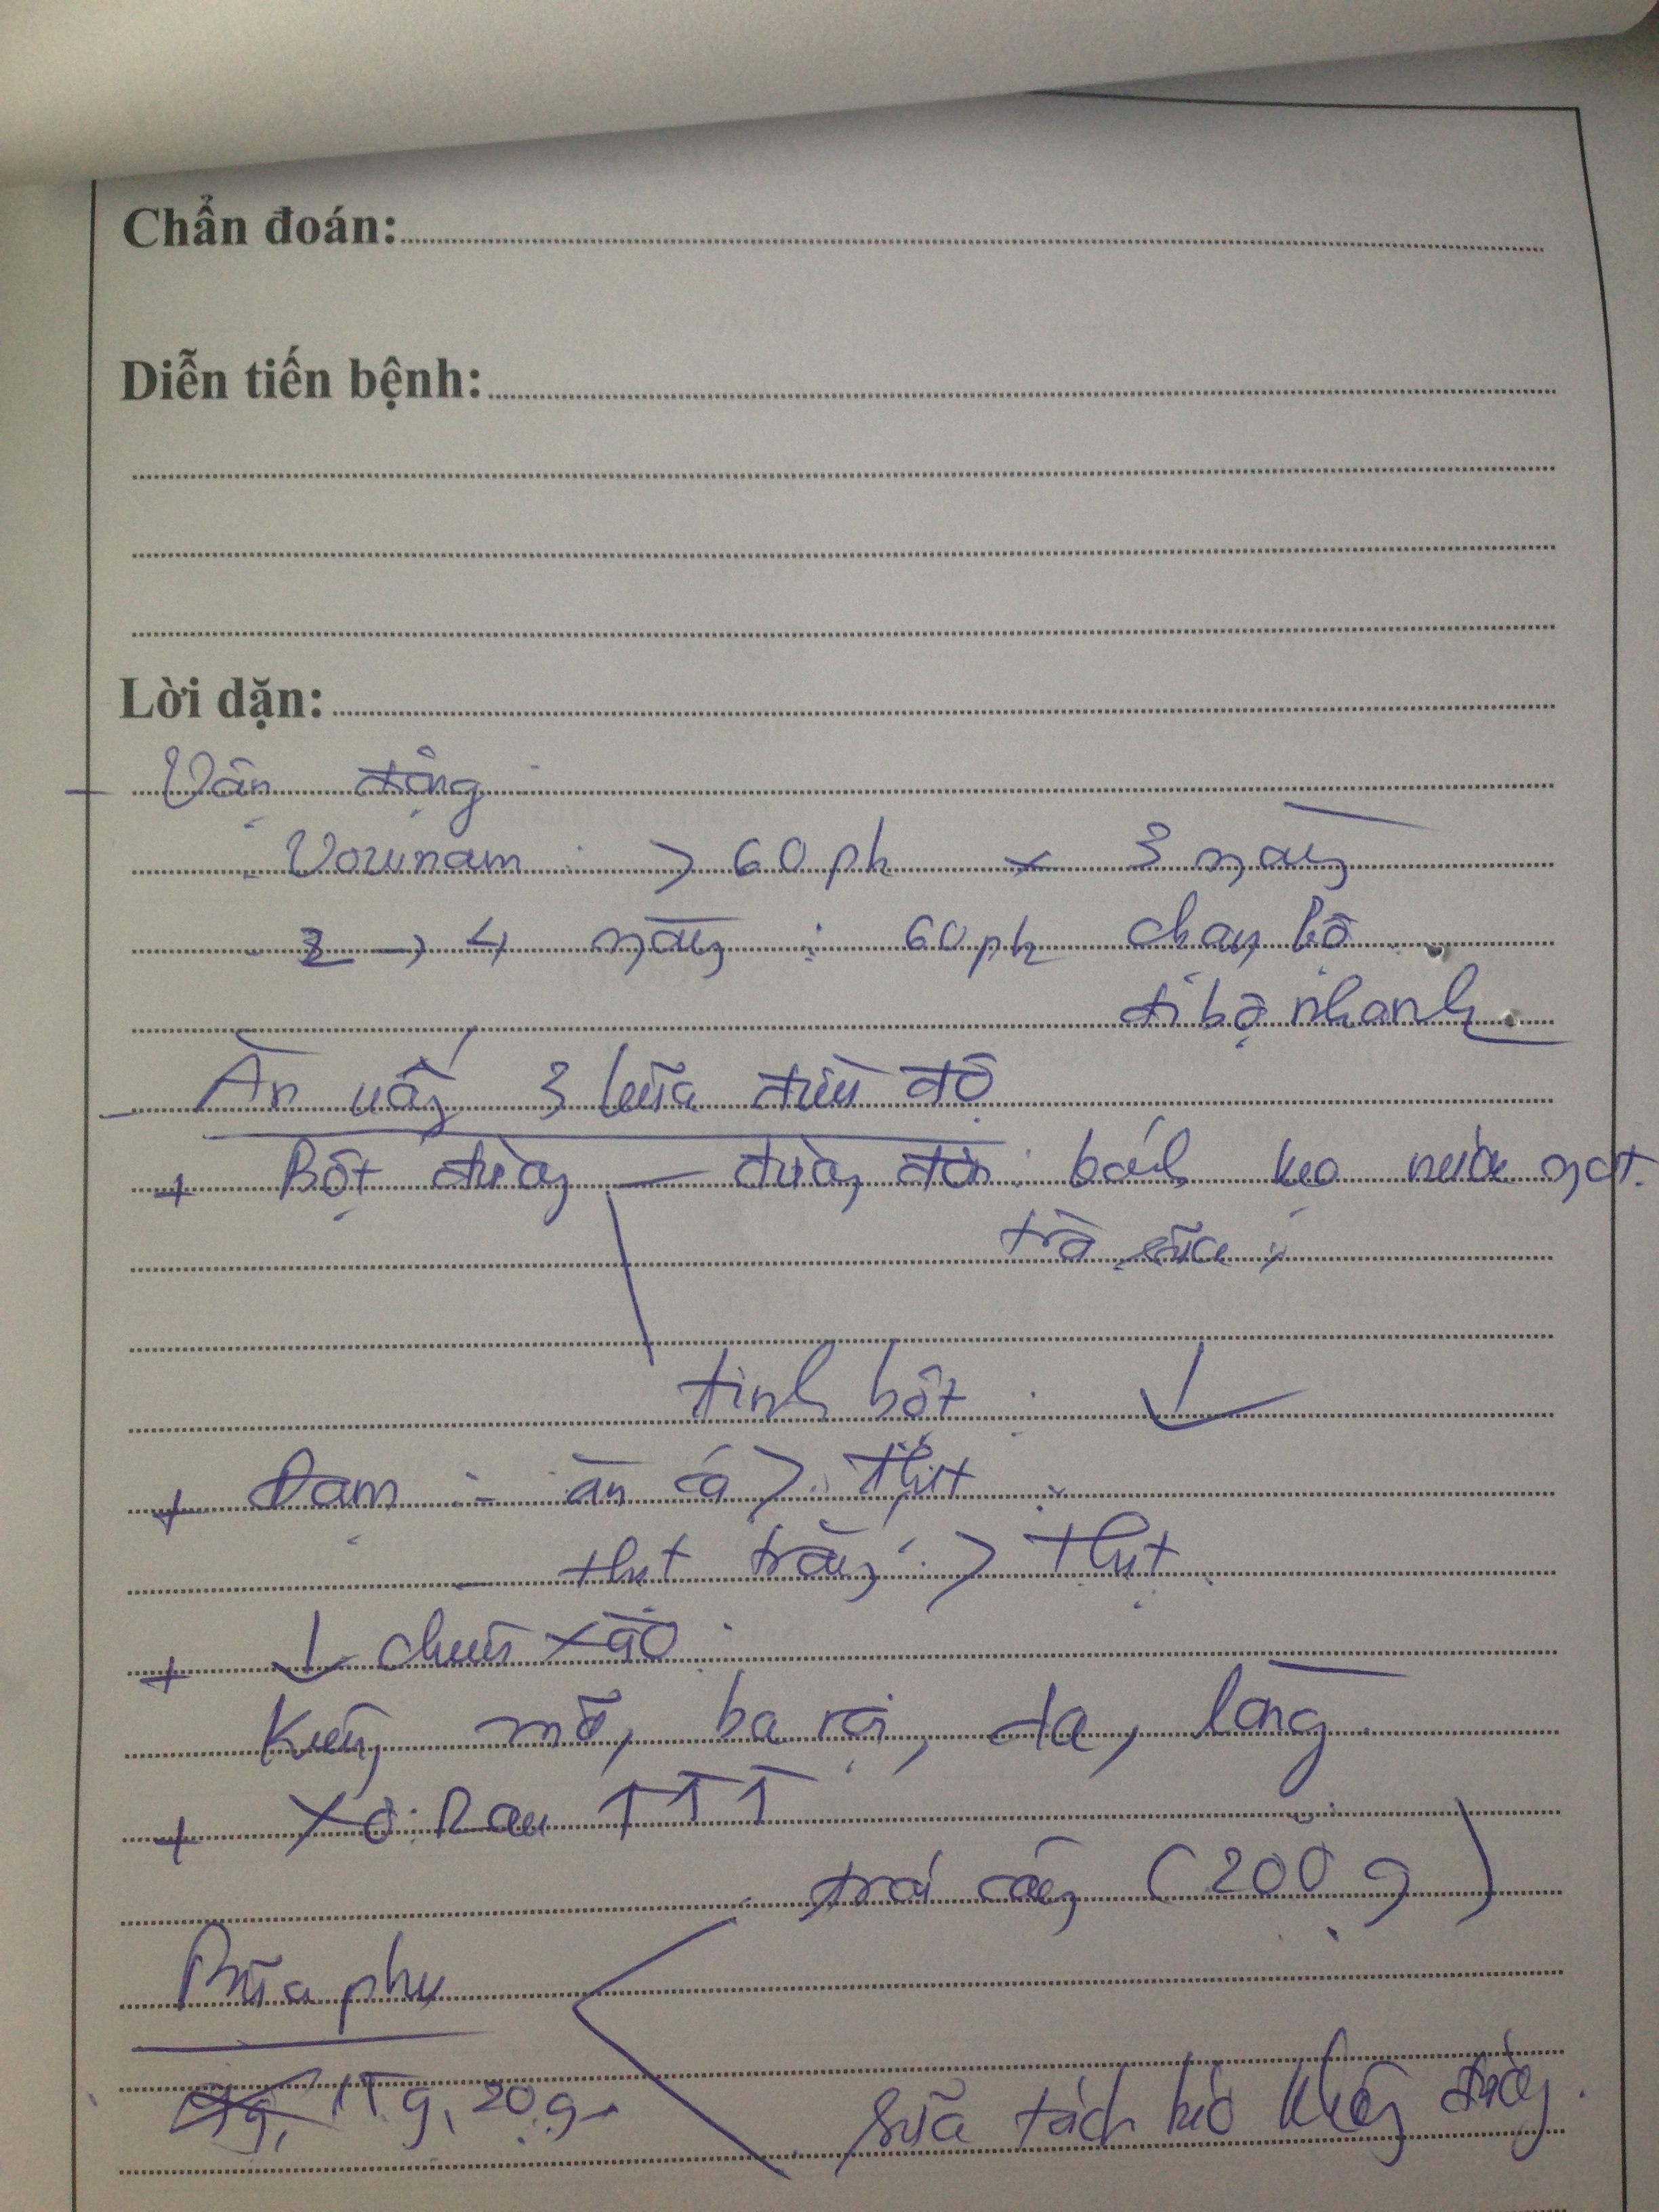 Chẩn đoán:
Diễn tiến bệnh:
Lời dặn:
- Vận động :
- Vovinam : > 60 ph x 3 ngày
- 3 → 4 ngày : 60 ph chạy bộ
đi bộ nhanh
- Ăn uống 3 bữa điều độ
+ Bột đường - đường đơn : bánh kẹo nước ngọt.
trà sữa
tinh bột : ↓
+ Đạm : - ăn cá > thịt
- thịt trắng > thịt
+ ↓ chiên xào :
Kiêng mỡ, ba rọi, da, lòng.
+ Xơ : Rau ↑↑↑
trái cây (200 g)
Bữa phụ
15 g, 20 g
sữa tách béo không đường.